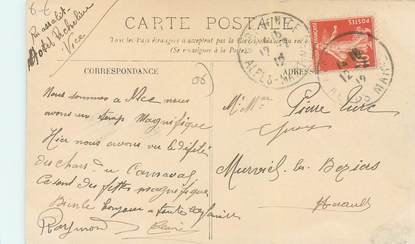 6-6
Hotel Richelieu
Nice
CARTE POSTALE
Tous les Pays étrangers n'acceptent pas la Correspondance au recto
(Se renseigner à la Poste)
CORRESPONDANCE
ADRESSE
POSTES
Nous sommes a Nice nous
avons un temps Magnifique
Hier nous avons vu le défilé
des chars du Carnaval
Ce sont des fêttes magnifiques
bonjour a toute la famille
Raymond
Mr Mme Pierre
Murviel les Beziers
Herault